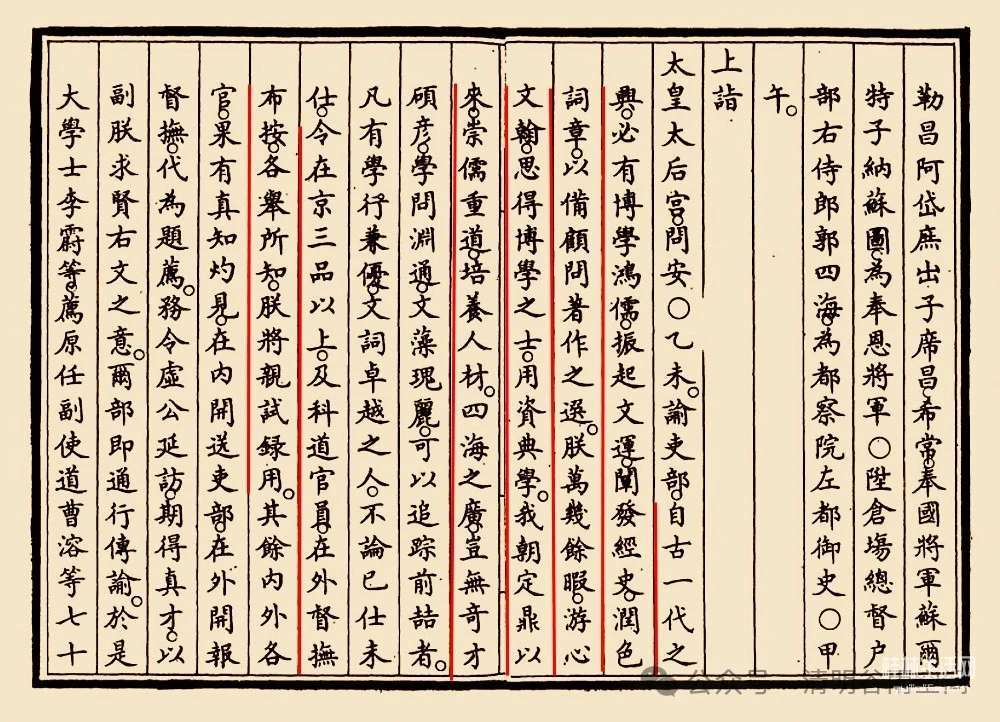 勒昌阿岱庶出子席昌。希常。奉國將軍蘇爾
特子納蘇圖。為奉恩將軍〇陞倉場總督户
部右侍郎郭四海。為都察院左都御史〇甲
午。
上詣
太皇太后宮。問安〇乙未。諭吏部。自古一代之
興。必有博學鴻儒。振起文運。闡發經史。潤色
詞章。以備顧問著作之選。朕萬幾餘暇。游心
文翰。思得博學之士。用資典學。我朝定鼎以
來。崇儒重道。培養人材。四海之廣。豈無奇才
碩彦。學問淵通。文藻瑰麗。可以追踪前喆者。
凡有學行兼優。文詞卓越之人。不論已仕未
仕。令在京三品以上。及科道官員。在外督撫
布按。各舉所知。朕將親試録用。其餘内外各
官。果有真知灼見。在内開送吏部。在外開報
督撫。代為題薦。務令虛公延訪。期得真才。以
副朕求賢右文之意。爾部即通行傳諭。於是
大學士李霨等。薦原任副使道曹溶等七十
公众号